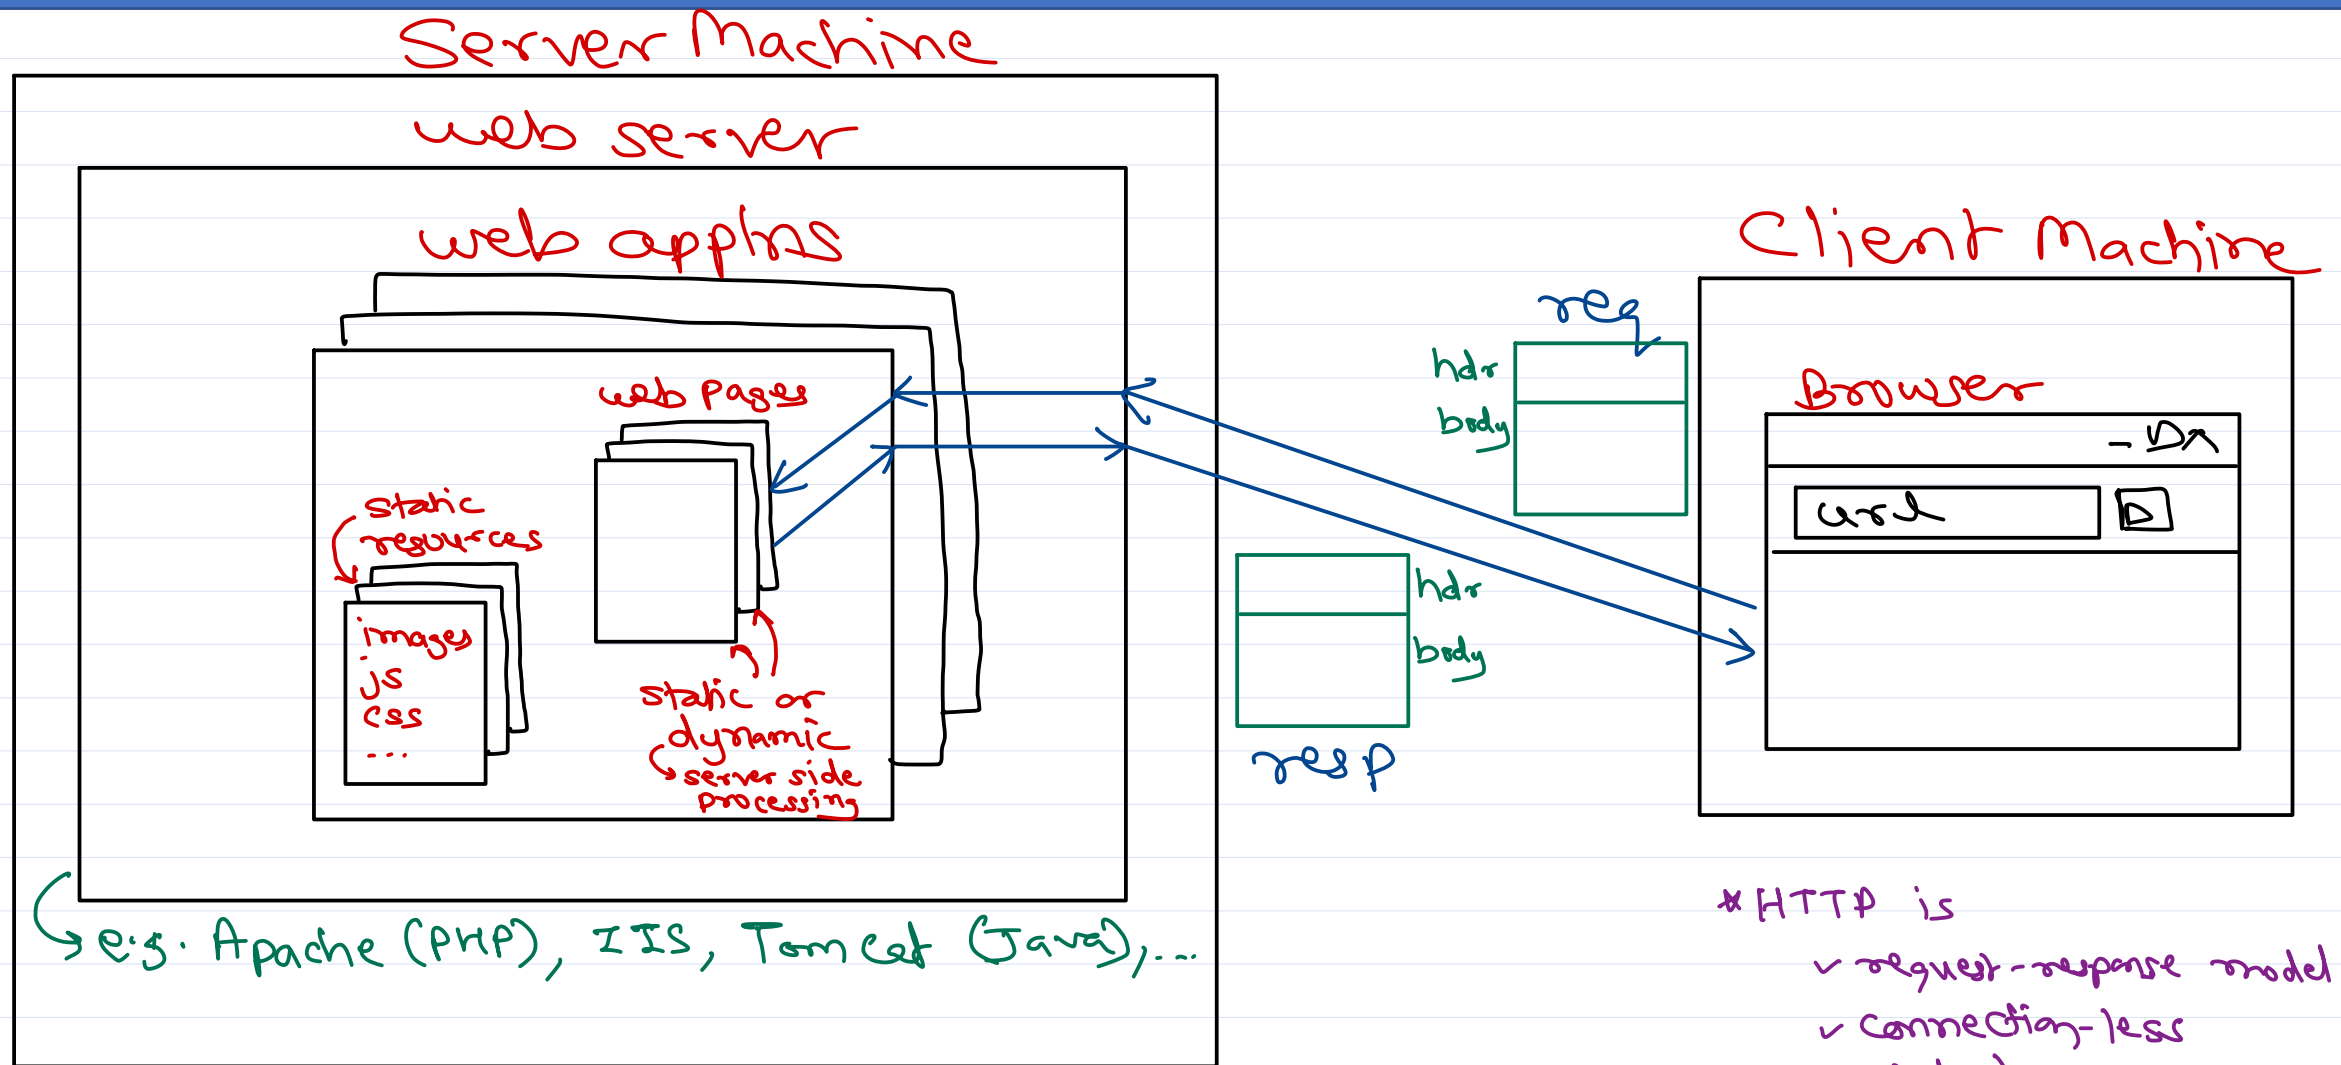 Server Machine
web server
web applns
web pages
static
resources
images
js
css
...
static or
dynamic
server side
processing
e.g. Apache (PHP), IIS, Tomcat (Java), ...
req
hdr
body
hdr
body
resp
Client Machine
Browser
url
* HTTP is
✓ request-response model
✓ connection-less